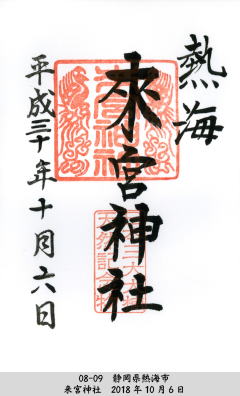 熱海
來宮神社
平成三十年十月六日
08-09 静岡県熱海市
來宮神社 2018年10月6日